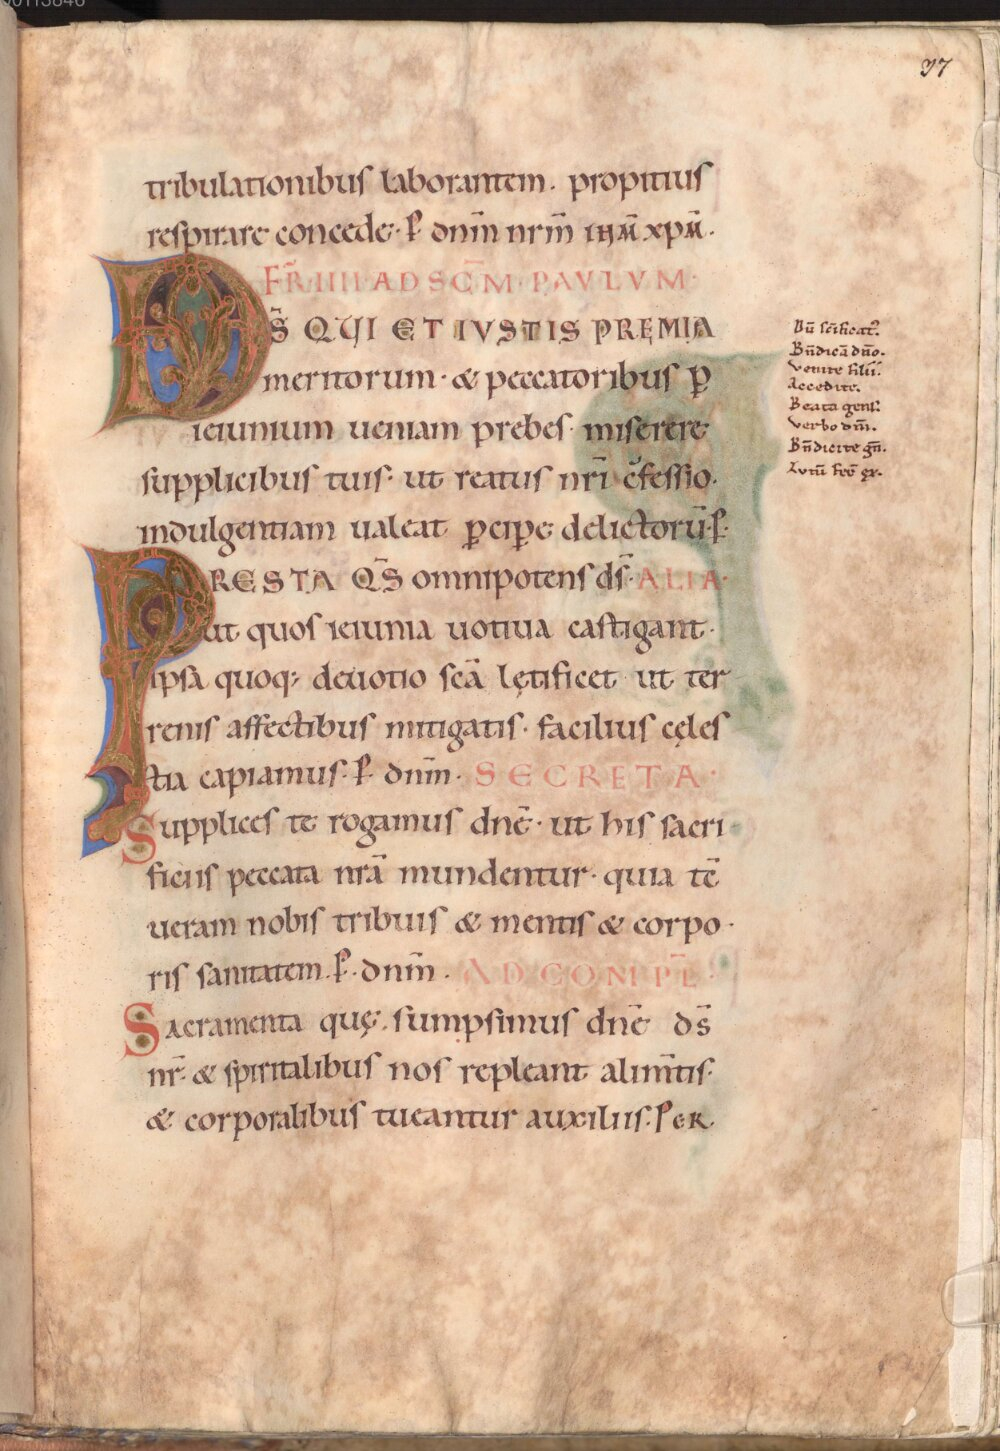 97
tribulationibus laborantem. propitius
respirare concede. P dnm̄ nrm̄ ihm̄ xpm̄.
FR̄ IIII AD SCM̄ PAVLVM
DS̄ QUI ET IVSTIS PREMIA
meritorum. & peccatoribus p̄
ieiunium ueniam prebes. miserere
supplicibus tuis. ut reatus nr̄i c̄fessio.
indulgentiam ualeat ꝑcipe delictorū. P.
PRESTA QS̄ omnipotens ds̄. ALIA.
ut quos ieiunia uotiua castigant.
ipsa quoq; deuotio scā lętificet ut ter
renis affectibus mitigatis. facilius cęles
tia capiamus. P dnm̄. SECRETA.
Supplices te rogamus dnē. ut his sacri
ficiis peccata nrā mundentur. quia tē
ueram nobis tribuis & mentis & corpo.
ris sanitatem. P. dnm̄. AD COMPL̄.
Sacramenta quę sumpsimus dnē ds̄
nr̄. & spiritalibus nos repleant alim̄tis.
& corporalibus tueantur auxiliis. PER.
Dū sc̄ificat᷒.
Bn̄dicā dn̄o.
Venite filii.
Accedite.
Beata gens.
Verbo dn̄i.
Bn̄dicite gn̄.